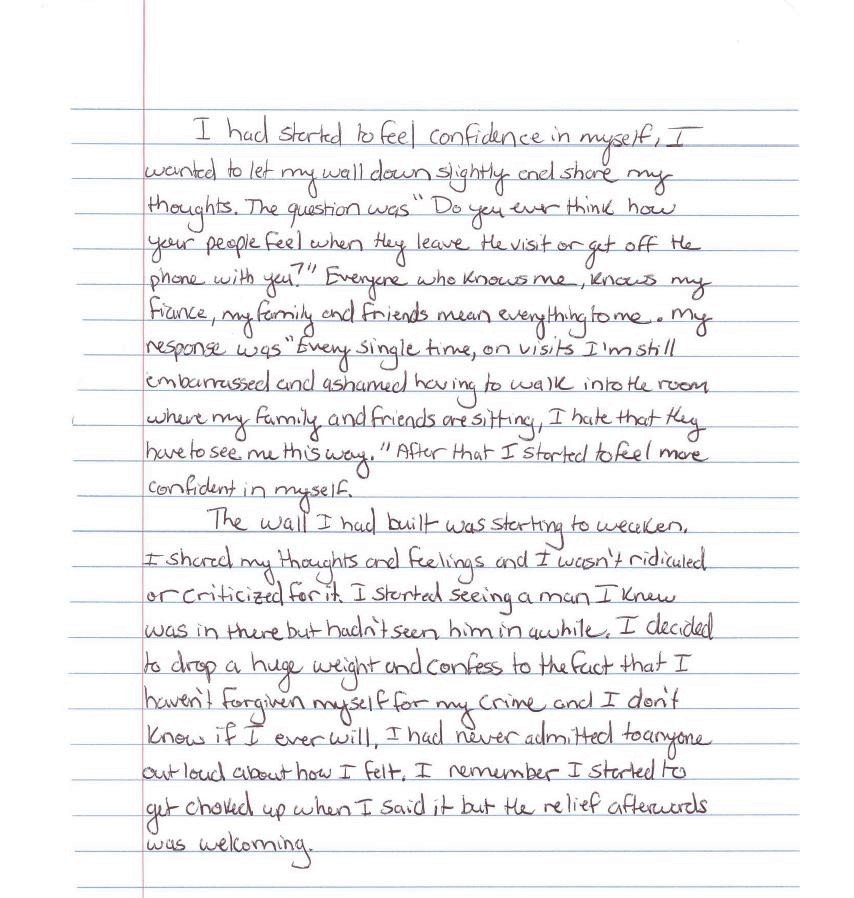 I had started to feel confidence in myself, I
wanted to let my wall down slightly and share my
thoughts. The question was "Do you ever think how
your people feel when they leave the visit or get off the
phone with you?" Everyone who knows me, knows my
fiance, my family and friends mean everything to me. My
response was "Every single time, on visits I'm still
embarrassed and ashamed having to walk into the room
where my family and friends are sitting, I hate that they
have to see me this way." After that I started to feel more
confident in myself.
The wall I had built was starting to weaken.
I shared my thoughts and feelings and I wasn't ridiculed
or criticized for it. I started seeing a man I knew
was in there but hadn't seen him in awhile. I decided
to drop a huge weight and confess to the fact that I
haven't forgiven myself for my crime and I don't
know if I ever will, I had never admitted to anyone
out loud about how I felt. I remember I started to
get choked up when I said it but the relief afterwords
was welcoming.